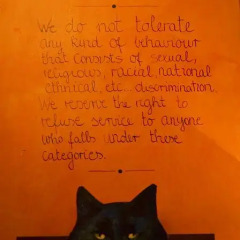 We do not tolerate
any kind of behaviour
that consists of sexual,
religious, racial, national
ethnical, etc. discrimination.
We resent the right to
refuse service to anyone
who falls under these
categories.